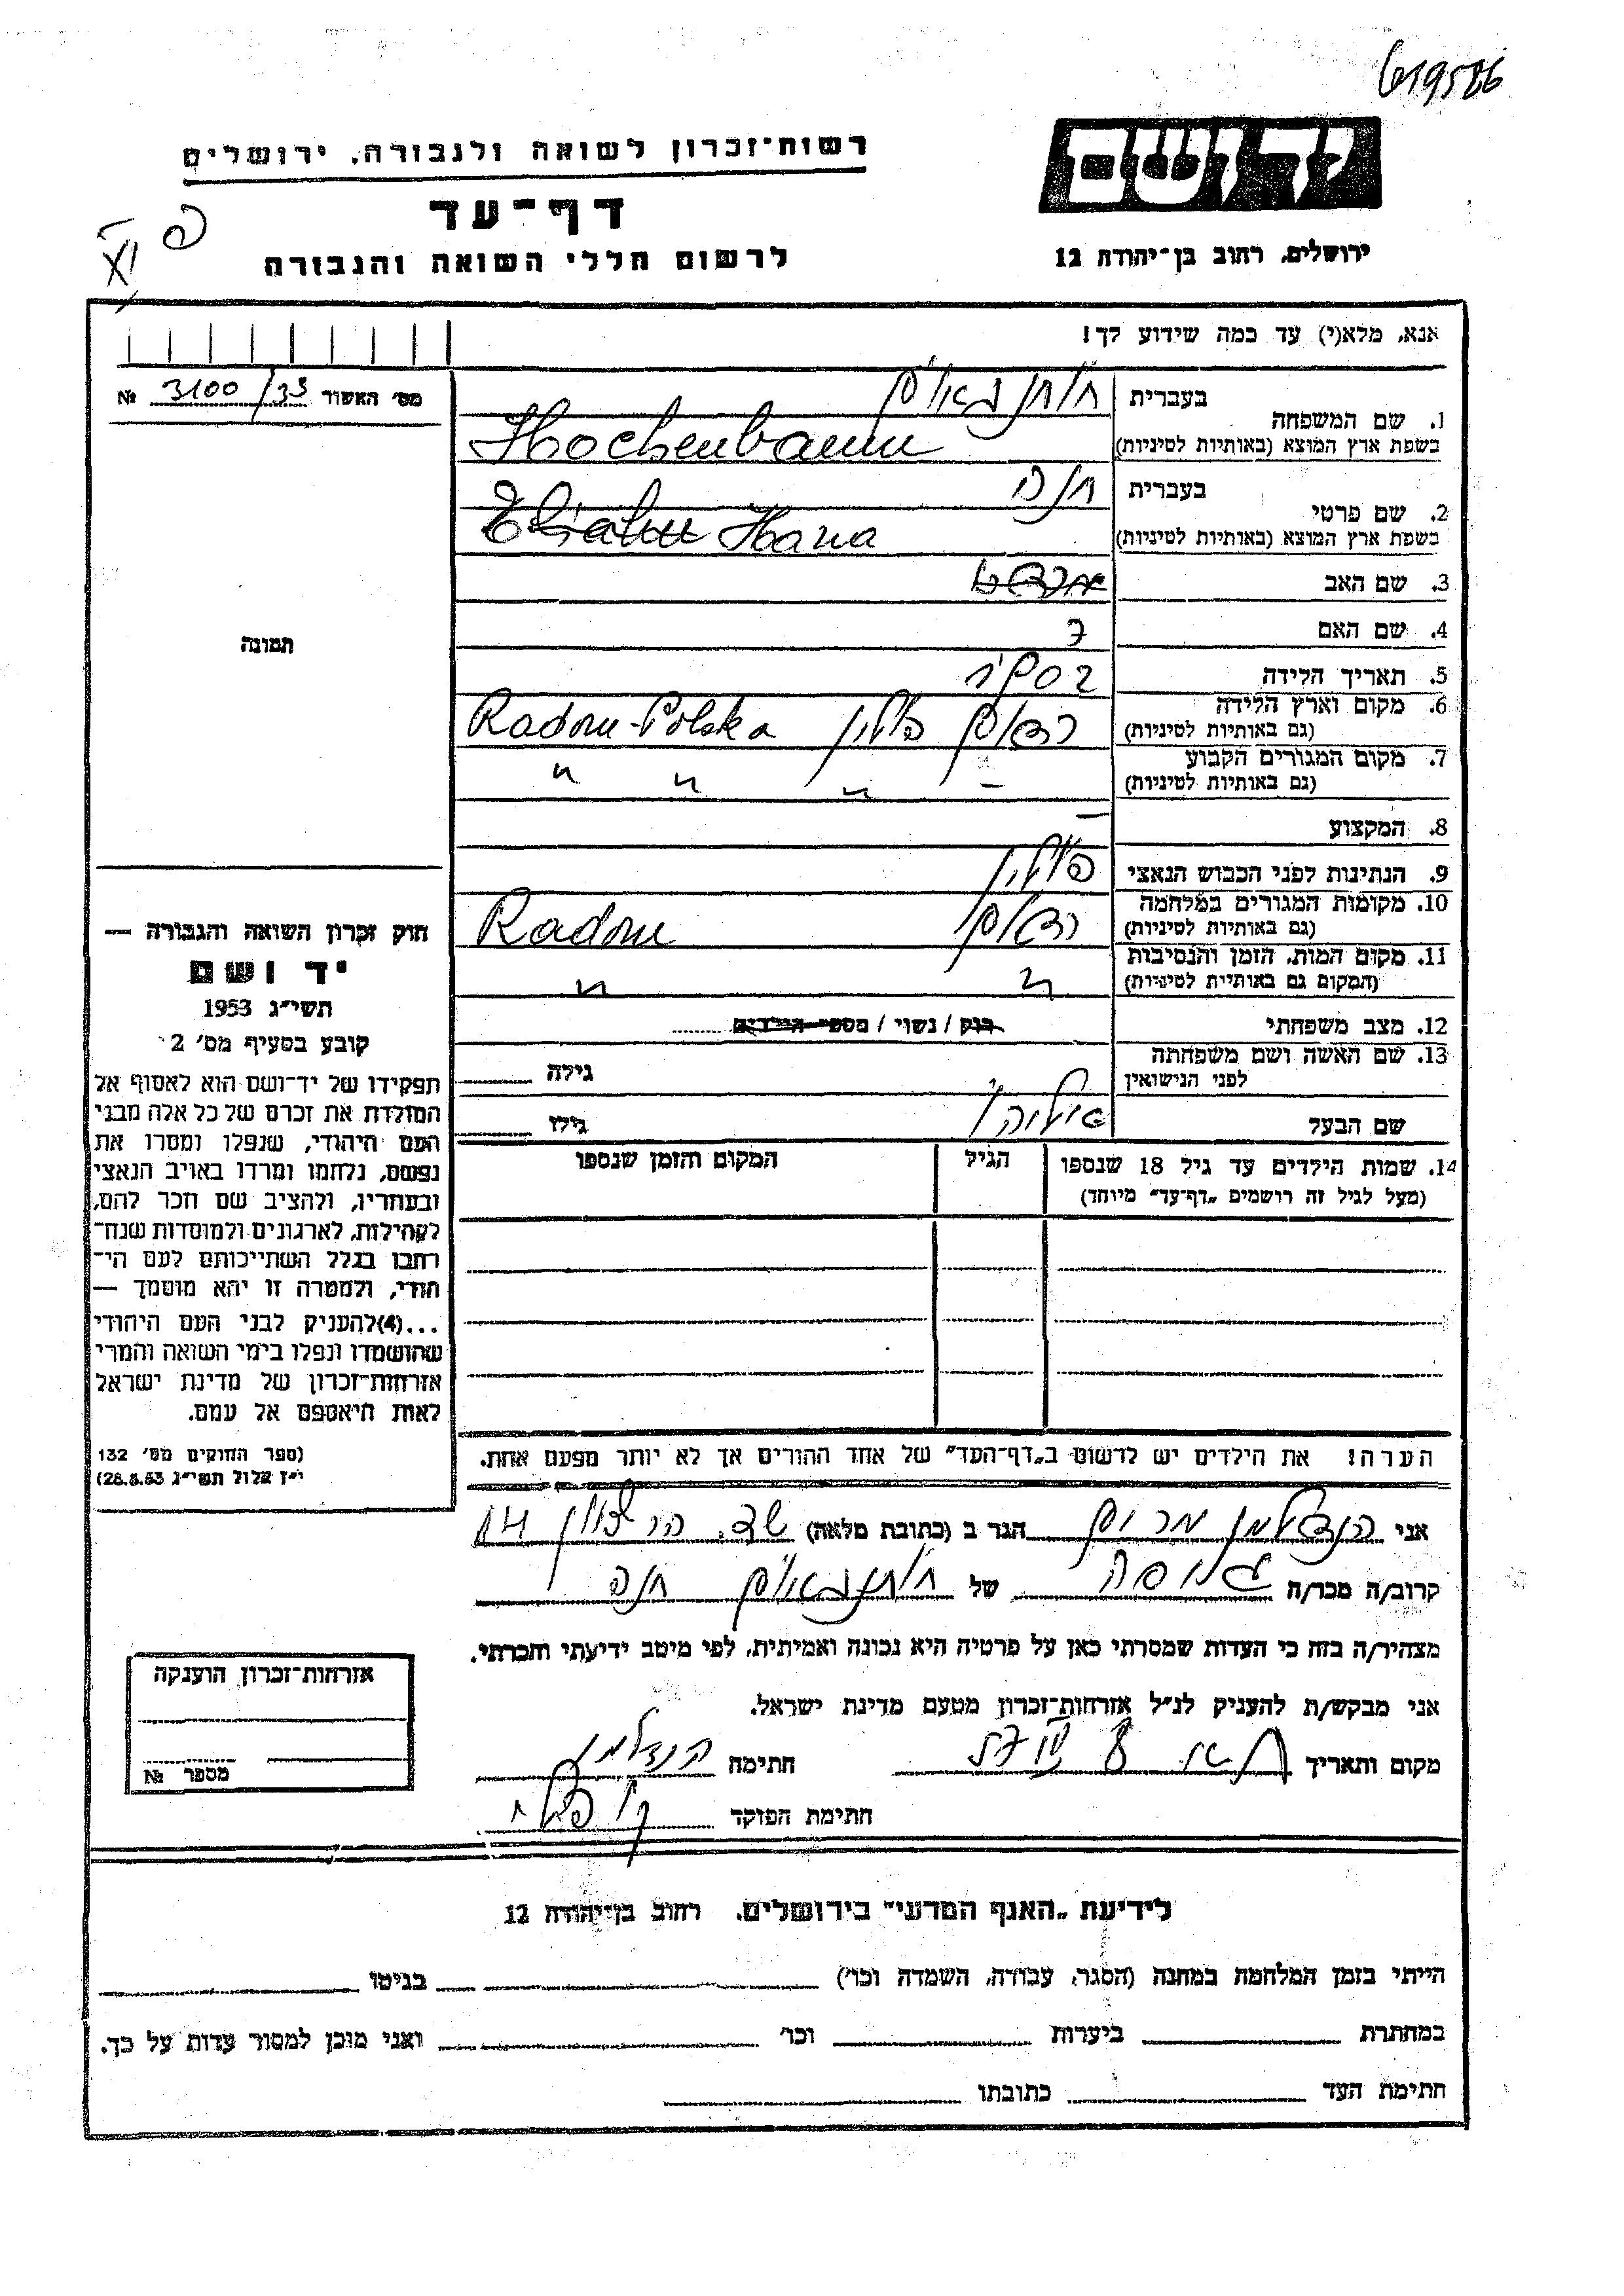 619586
רשות־זכרון לשואה ולגבורה, ירושלים
יד ושם
דף־עד
לרשום חללי השואה והגבורה
ירושלים, רחוב בן־יהודה 12
אנא, מלא(י) עד כמה שידוע לך!
מס' האשור 3100/33 №
1. שם המשפחה
בעברית
בשפת ארץ המוצא (באותיות לטיניות) Hochenbaum
2. שם פרטי
בעברית חנה
בשפת ארץ המוצא (באותיות לטיניות) Hana
3. שם האב
4. שם האם
5. תאריך הלידה
6. מקום וארץ הלידה
(גם באותיות לטיניות) רדום פולין Radom-Polska
7. מקום המגורים הקבוע
(גם באותיות לטיניות) – " " "
8. המקצוע –
9. הנתינות לפני הכבוש הנאצי פולין
10. מקומות המגורים במלחמה
(גם באותיות לטיניות) רדום Radom
11. מקום המות, הזמן והנסיבות
(המקום גם באותיות לטיניות) " "
12. מצב משפחתי רווק / נשוי / מספר הילדים
13. שם האשה ושם משפחתה
לפני הנישואין גילה
שם הבעל גילו
14. שמות הילדים עד גיל 18 שנספו
(מעל לגיל זה רושמים „דף־עד" מיוחד)
הגיל
המקום והזמן שנספו
תמונה
חוק זכרון השואה והגבורה —
יד ושם
תשי"ג 1953
קובע בסעיף מס' 2
תפקידו של יד־ושם הוא לאסוף אל
המולדת את זכרם של כל אלה מבני
העם היהודי, שנפלו ומסרו את
נפשם, נלחמו ומרדו באויב הנאצי
ובעוזריו, ולהציב שם וזכר להם,
לקהילות, לארגונים ולמוסדות שנח־
רבו בגלל השתייכותם לעם הי־
הודי, ולמטרה זו יהא מוסמך —
...(4)להעניק לבני העם היהודי
שהושמדו ונפלו בימי השואה והמרי
אזרחות־זכרון של מדינת ישראל
לאות היאספם אל עמם.
(ספר החוקים מס' 132
י"ז אלול תשי"ג 28.8.53)
הערה! את הילדים יש לרשום ב„דף־העד" של אחד ההורים אך לא יותר מפעם אחת.
אני הנדלמן מרים הגר ב (כתובת מלאה) שד. הר ציון
קרוב/ה מכר/ה גיסה של חנה
מצהיר/ה בזה כי העדות שמסרתי כאן על פרטיה היא נכונה ואמיתית, לפי מיטב ידיעתי והכרתי.
אני מבקש/ת להעניק לנ"ל אזרחות־זכרון מטעם מדינת ישראל.
מקום ותאריך חתימה הנדלמן
חתימת הפוקד
אזרחות־זכרון הוענקה
מספר №
לידיעת „האגף המדעי" בירושלים, רחוב בן־יהודה 12
הייתי בזמן המלחמה במחנה (הסגר, עבודה, השמדה וכו') בגיטו
במחתרת ביערות וכו' ואני מוכן למסור עדות על כך.
חתימת העד כתובתו